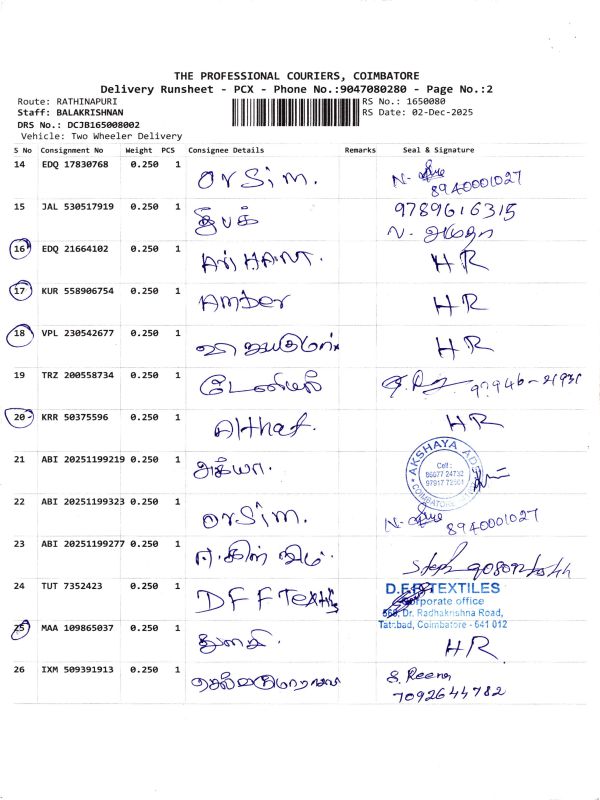 THE PROFESSIONAL COURIERS, COIMBATORE
Delivery Runsheet - PCX - Phone No.:9047080280 - Page No.:2
Route: RATHINAPURI
RS No.: 1650080
Staff: BALAKRISHNAN
RS Date: 02-Dec-2025
DRS No.: DCJB165008002
Vehicle: Two Wheeler Delivery
S No Consignment No Weight PCS Consignee Details Remarks Seal & Signature
14 EDQ 17830768 0.250 1 Orsim. N-
8940001027
15 JAL 530517919 0.250 1 தீபக் 9789616315
N.
16 EDQ 21664102 0.250 1 HR
17 KUR 558906754 0.250 1 Amber HR
18 VPL 230542677 0.250 1 HR
19 TRZ 200558734 0.250 1
20 KRR 50375596 0.250 1 Althaf. HR
21 ABI 20251199219 0.250 1 AKSHAYA
Cell :
COIMBATORE
22 ABI 20251199323 0.250 1 Orsim. N-
8940001027
23 ABI 20251199277 0.250 1
24 TUT 7352423 0.250 1 DFF Textiles D.F.F TEXTILES
Corporate office
Dr. Radhakrishna Road,
Tatabad, Coimbatore - 641 012
25 MAA 109865037 0.250 1 துளசி. HR
26 IXM 509391913 0.250 1 S. Reena
7092644782